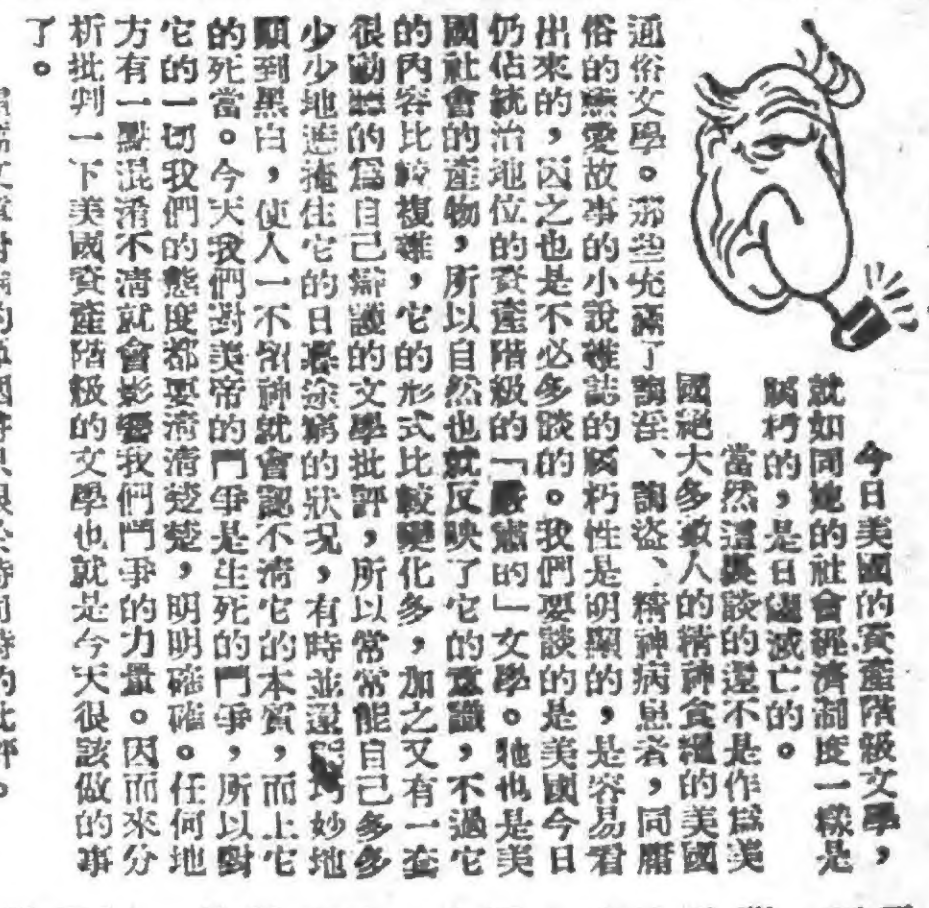 今日美國的資產階級文學，
就如同她的社會經濟制度一樣是
腐朽的，是日趨滅亡的。
當然這裏談的還不是作爲美
國絕大多數人的精神食糧的美國
通俗文學。那些充滿了誨淫、誨盜、精神病患者，同庸
俗的戀愛故事的小說雜誌的腐朽性是明顯的，是容易看
出來的，因之也是不必多談的。我們要談的是美國今日
仍佔統治地位的資產階級的「嚴肅的」文學。牠也是美
國社會的產物，所以自然也就反映了它的意識，不過它
的內容比較複雜，它的形式比較變化多，加之又有一套
很動聽的爲自己辯護的文學批評，所以常常能自己多多
少少地遮掩住它的日暮途窮的狀況，有時並還能巧妙地
顛到黑白，使人一不留神就會認不清它的本質，而上它
的死當。今天我們對美帝的鬥爭是生死的鬥爭，所以對
它的一切我們的態度都要清清楚楚，明明確確。任何地
方有一點混淆不清就會影響我們鬥爭的力量。因而來分
析批判一下美國資產階級的文學也就是今天很該做的事
了。